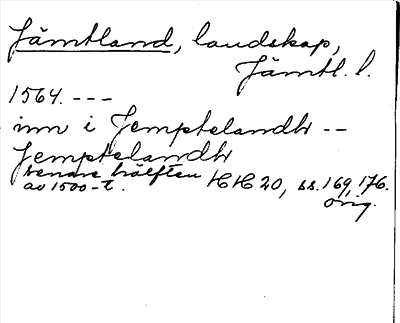 Jämtland, landskap,
Jämtl. l.
1564. ---
inn i Jemptelandh --
Jemptelandh
senare hälften
av 1500-t. HH 20, ss. 169, 176.
orig.